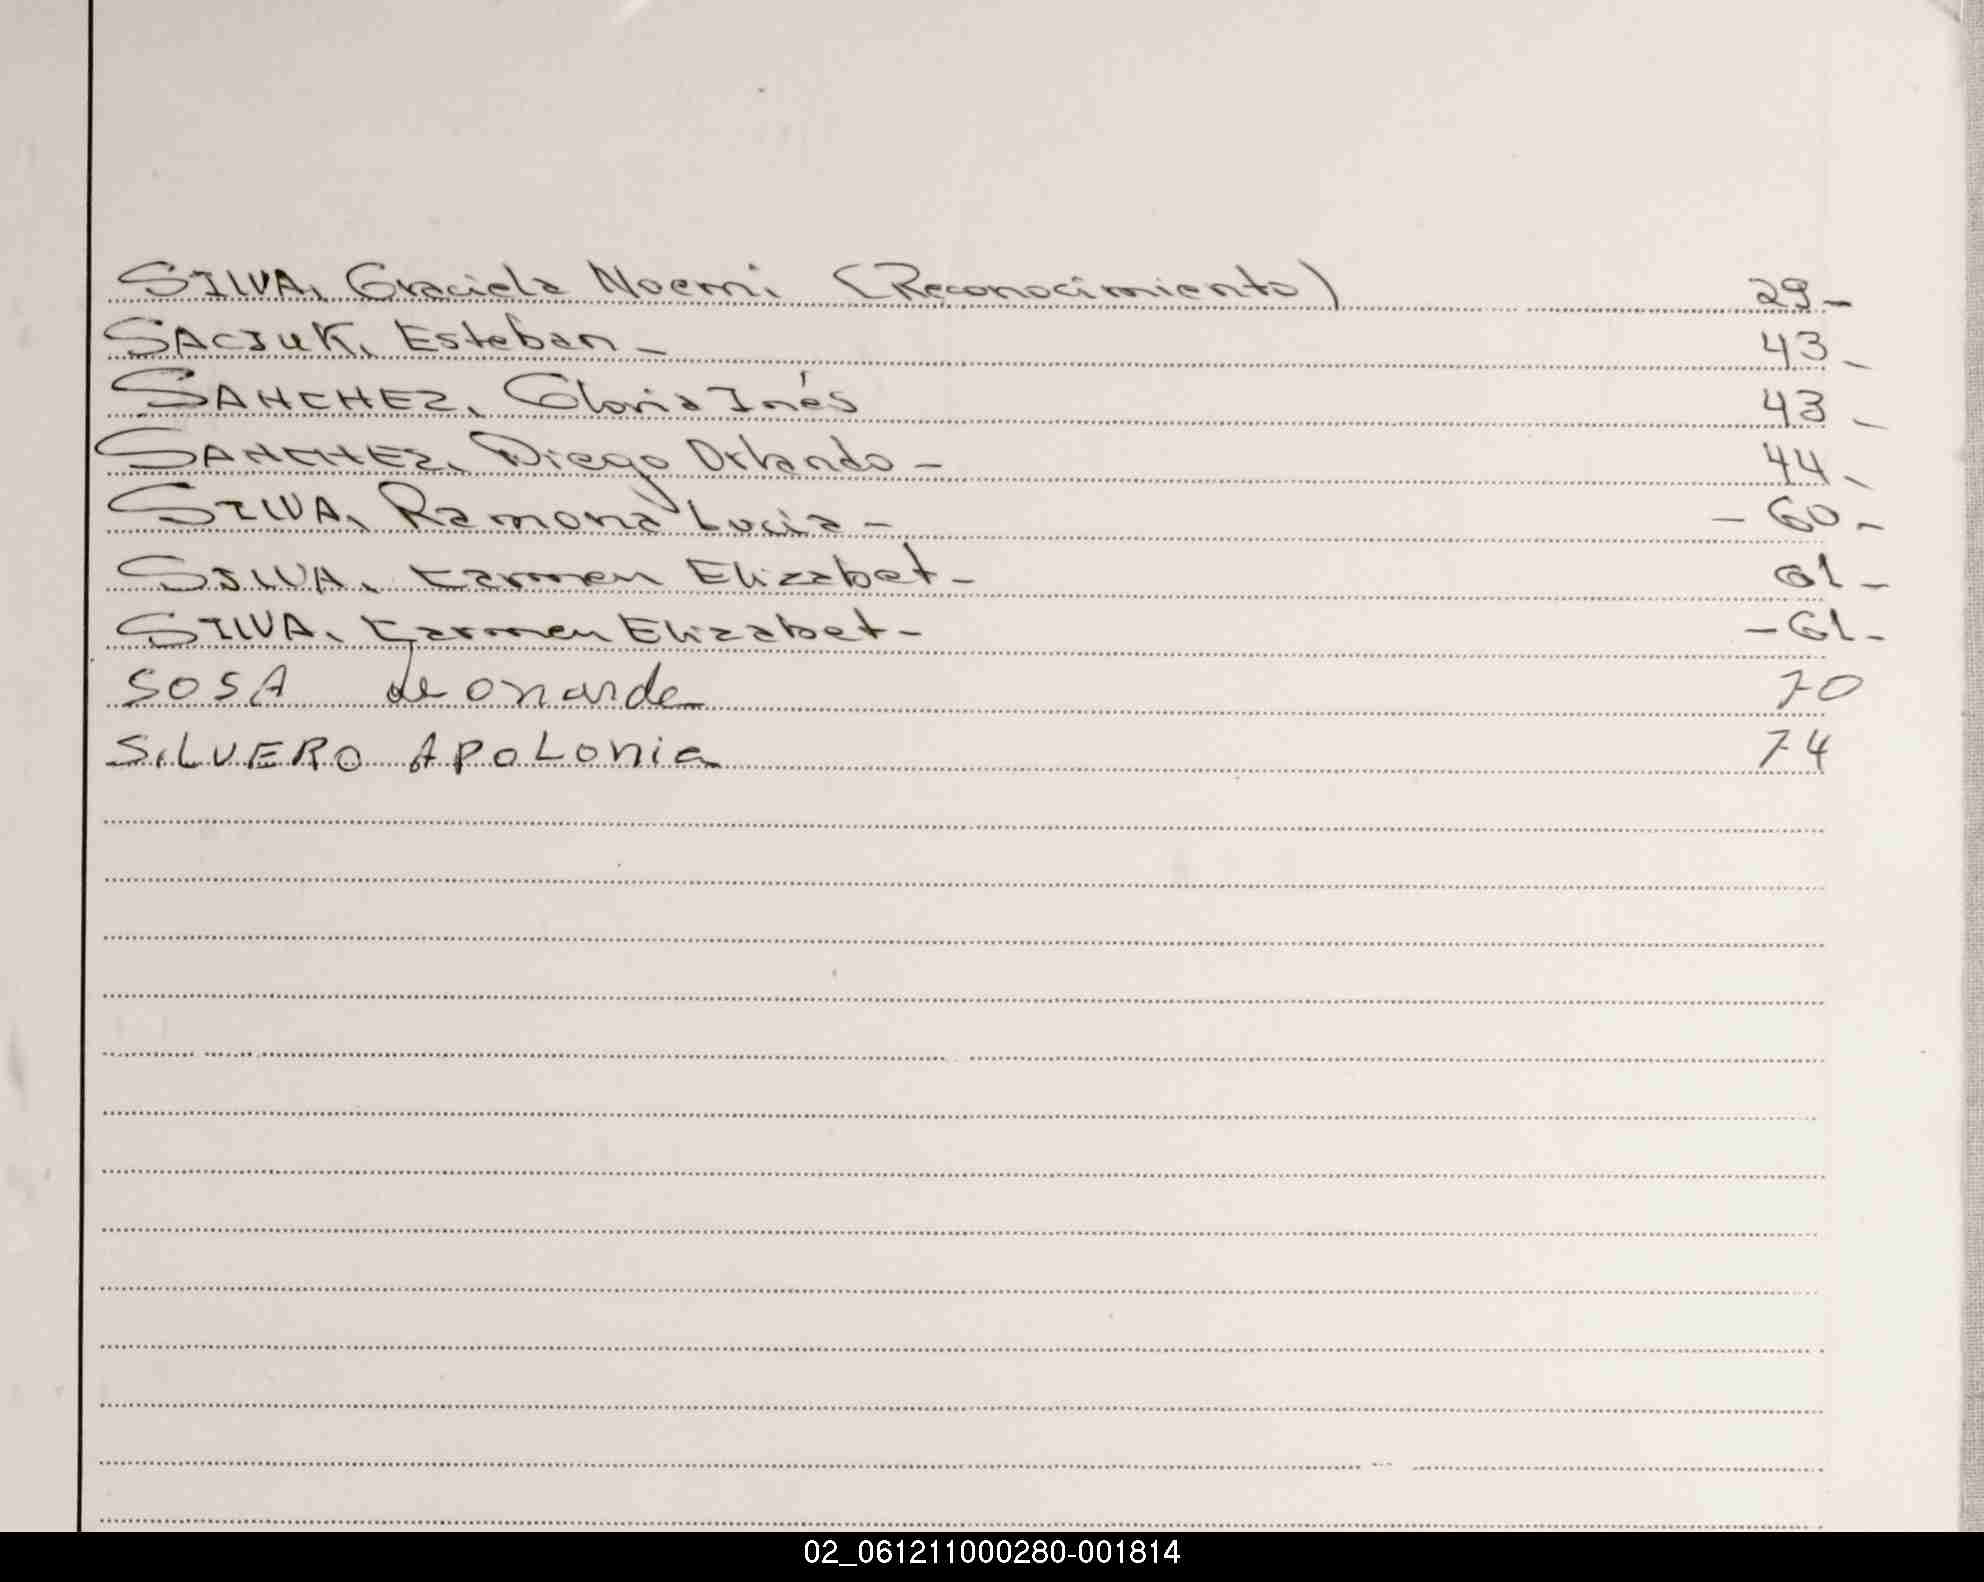 SILVA, Graciela Noemi (Reconocimiento) 29-
SACIUK, Esteban - 43-
SANCHEZ, Gloria Inés 43-
SANCHEZ, Diego Orlando - 44-
SILVA, Ramona Lucia - -60-
SILVA, Carmen Elizabet- 61-
SILVA, Carmen Elizabet- -61-
SOSA Leonarda 70
SILVERO APOLONIA 74
02_061211000280-001814